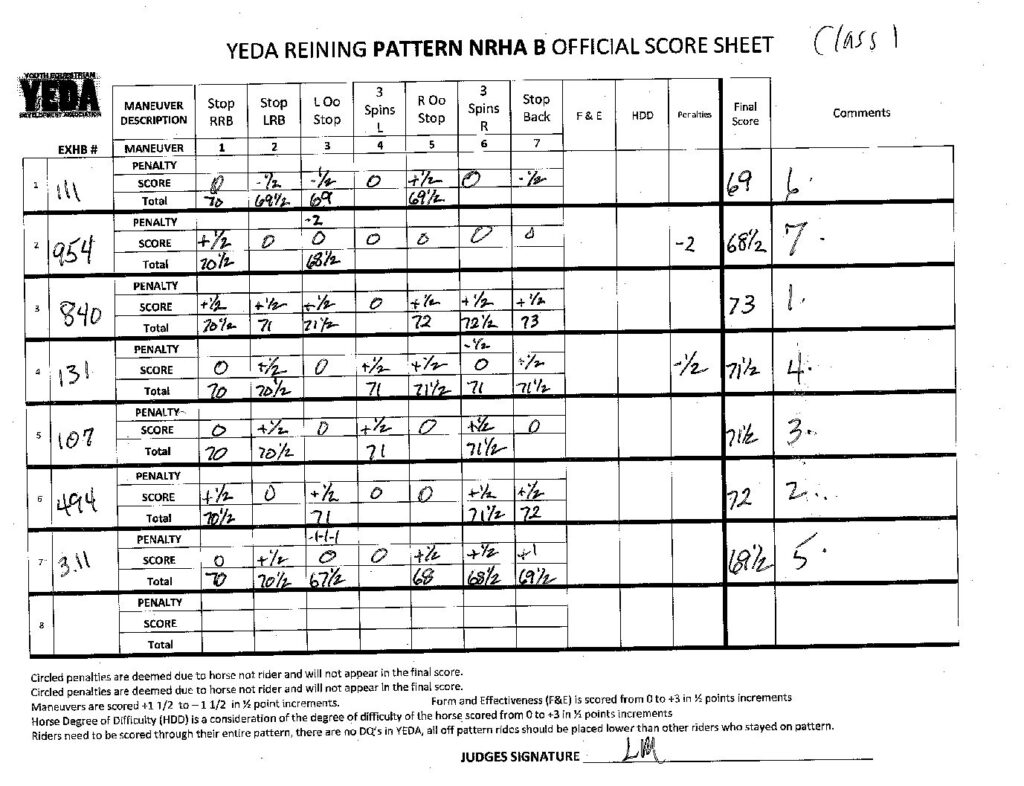 Class 1
YEDA REINING PATTERN NRHA B OFFICIAL SCORE SHEET
YOUTH EQUESTRIAN
YEDA
DEVELOPMENT ASSOCIATION
EXHB # MANEUVER DESCRIPTION Stop RRB Stop LRB L Oo Stop 3 Spins L R Oo Stop 3 Spins R Stop Back F & E HDD Penalties Final Score Comments
MANEUVER 1 2 3 4 5 6 7
1 111 PENALTY
SCORE 0 -½ -½ 0 +½ 0 -½ 69 6.
Total 70 69½ 69 69½
2 954 PENALTY -2
SCORE +½ 0 0 0 0 0 0 -2 68½ 7.
Total 70½ 68½
3 840 PENALTY
SCORE +½ +½ +½ 0 +½ +½ +½ 73 1.
Total 70½ 71 71½ 72 72½ 73
4 131 PENALTY -½
SCORE 0 +½ 0 +½ +½ 0 +½ -½ 71½ 4.
Total 70 70½ 71 71½ 71 71½
5 107 PENALTY
SCORE 0 +½ 0 +½ 0 +½ 0 71½ 3.
Total 70 70½ 71 71½
6 494 PENALTY
SCORE +½ 0 +½ 0 0 +½ +½ 72 2..
Total 70½ 71 71½ 72
7 311 PENALTY -1-1-1
SCORE 0 +½ 0 0 +½ +½ +1 69½ 5.
Total 70 70½ 67½ 68 68½ 69½
8 PENALTY
SCORE
Total
Circled penalties are deemed due to horse not rider and will not appear in the final score.
Circled penalties are deemed due to horse not rider and will not appear in the final score.
Maneuvers are scored +1 1/2 to – 1 1/2 in ½ point increments. Form and Effectiveness (F&E) is scored from 0 to +3 in ½ points increments
Horse Degree of Difficulty (HDD) is a consideration of the degree of difficulty of the horse scored from 0 to +3 in ½ points increments
Riders need to be scored through their entire pattern, there are no DQ's in YEDA, all off pattern rides should be placed lower than other riders who stayed on pattern.
JUDGES SIGNATURE LM